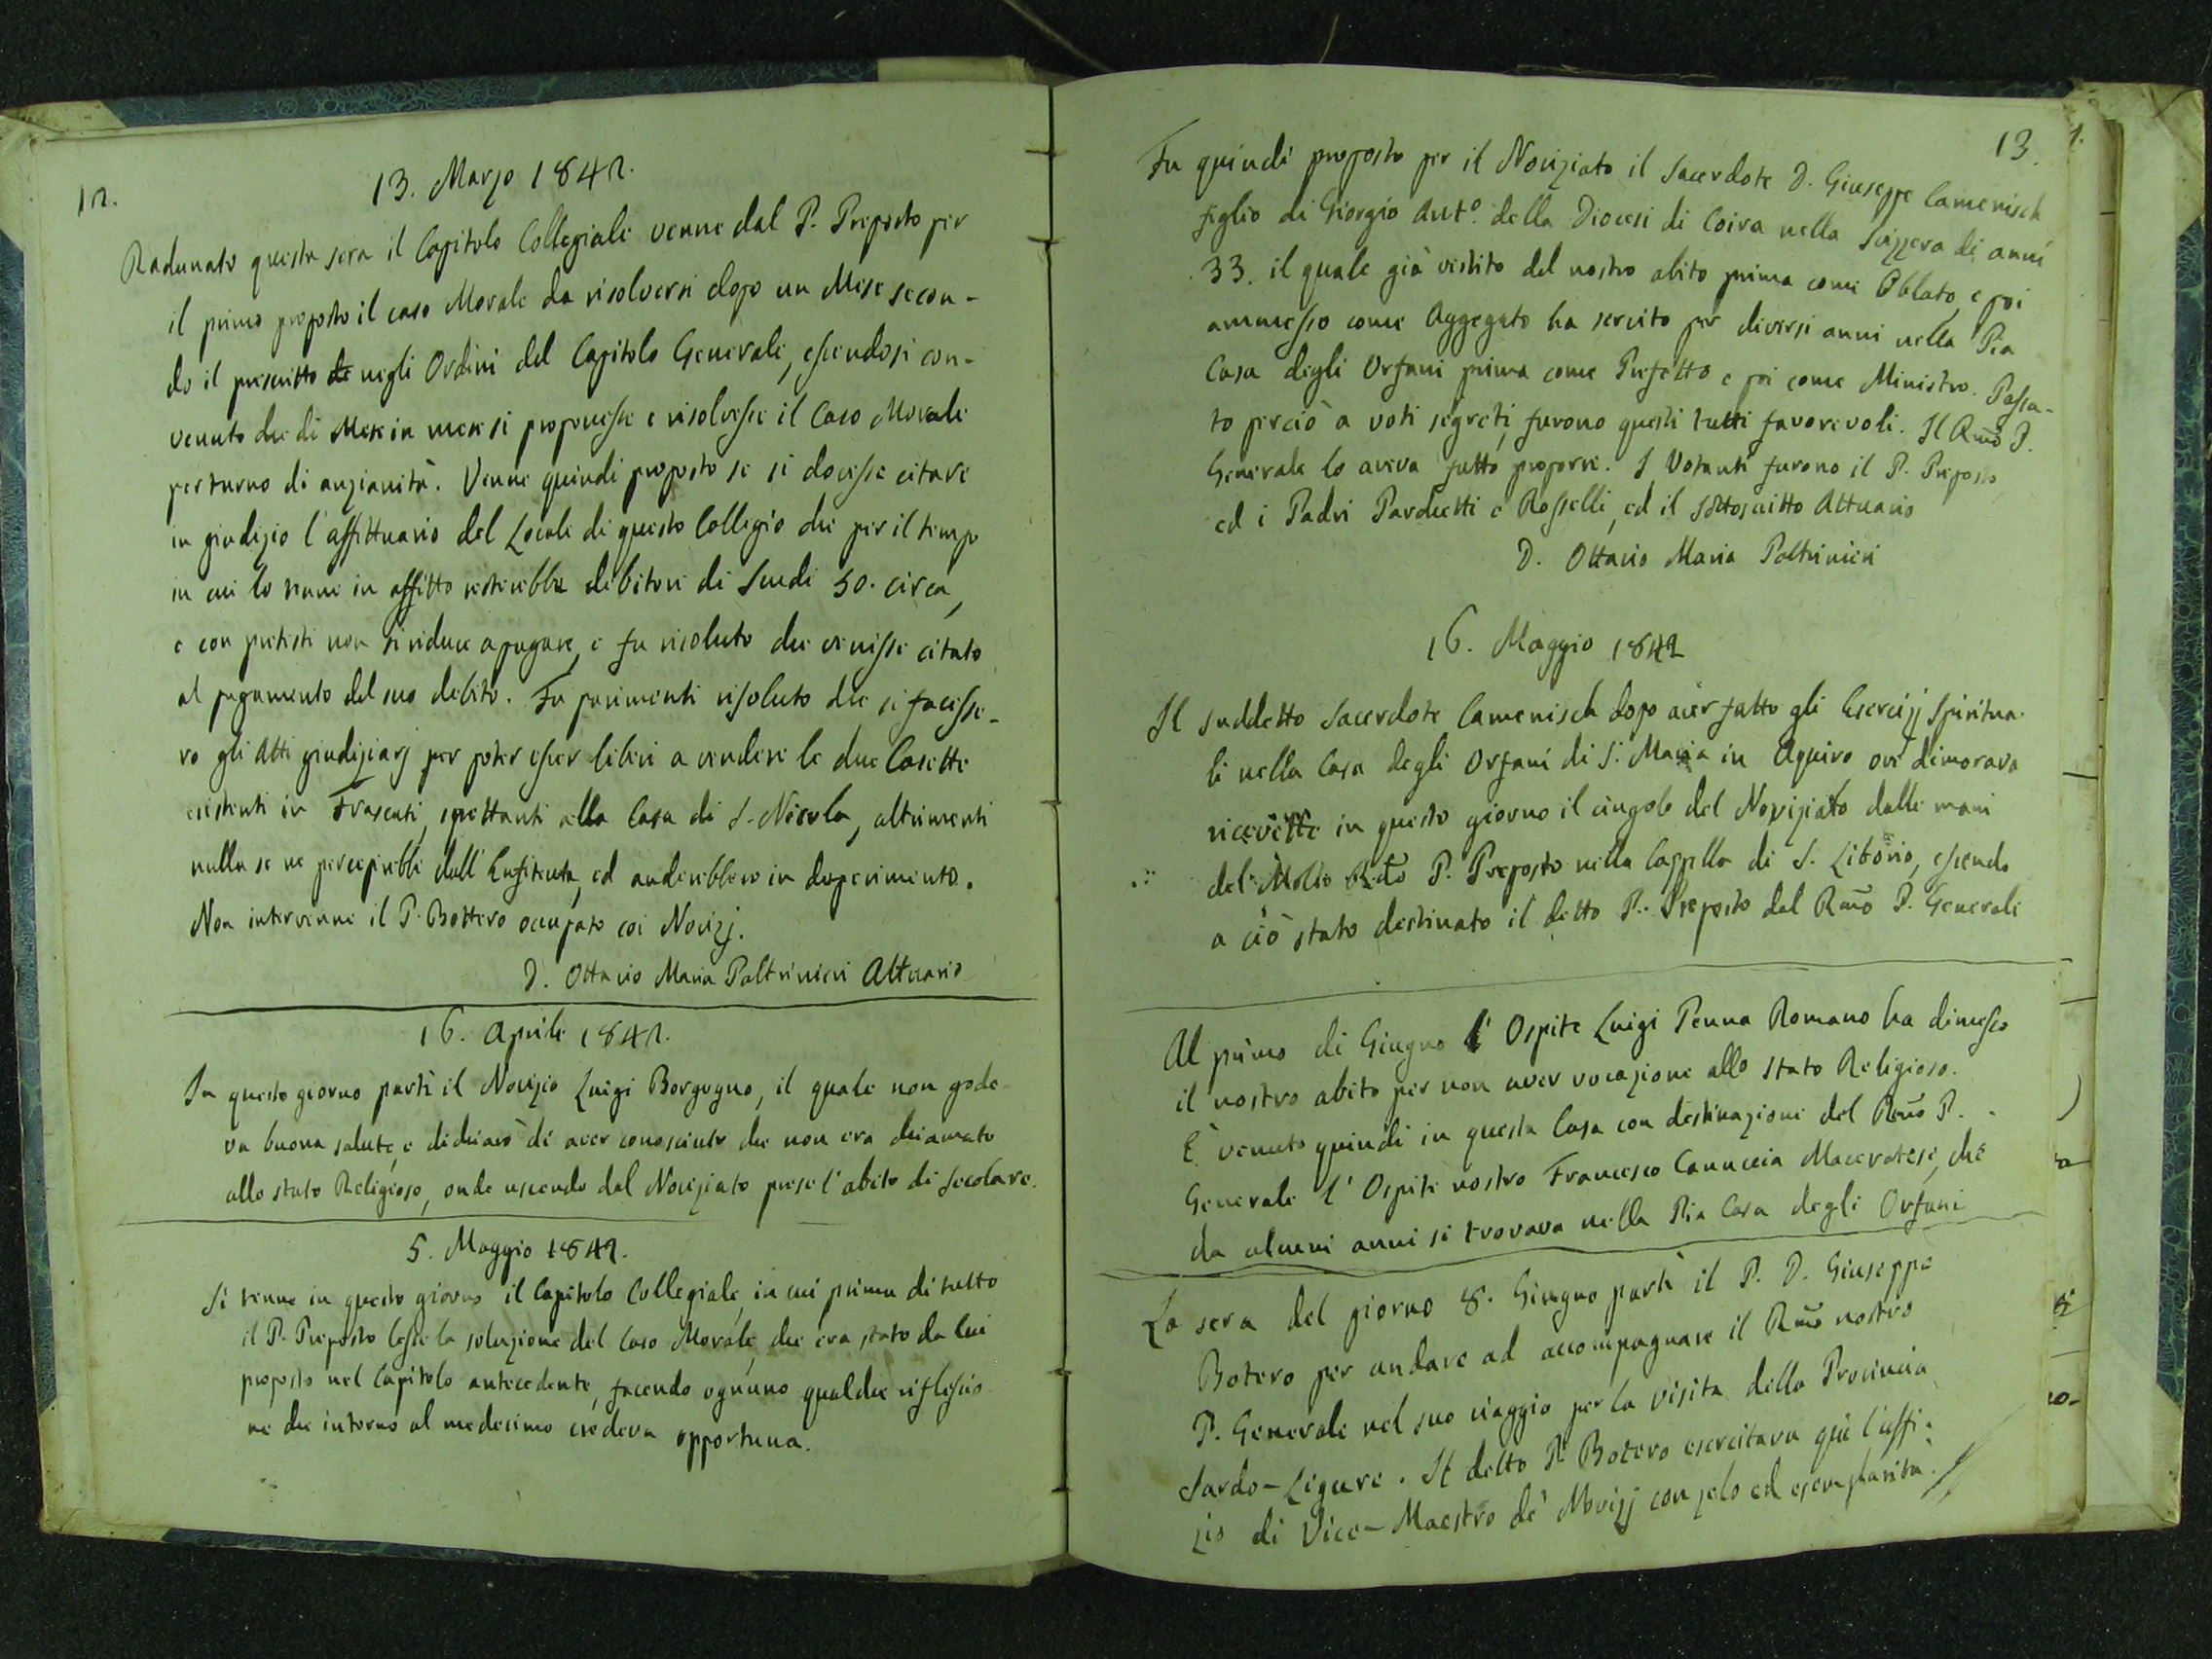 12.
13. Marzo 1842.
Radunato questa sera il Capitolo Collegiale venne dal P. Preposto per
il primo proposto il caso Morale da risolversi dopo un Mese secon-
do il prescritto de negli Ordini del Capitolo Generale, essendosi con-
venuto che di Mese in mese si proponesse e risolvesse il Caso Morale
per turno di anzianità. Venne quindi proposto se si dovesse citare
in giudizio l'affittuario del Locale di questo Collegio che per il tempo
in cui lo tenne in affitto resterebbe debitore di Scudi 50. circa,
e con pretesti non si riduce a pagare, e fu risoluto che venisse citato
al pagamento del suo debito. Fu parimenti risoluto che si facesse-
ro gli Atti giudiziarj per poter esser liberi a vendere le due Casette
esistenti in Frascati, spettanti alla Casa di S. Nicola, altrimenti
nulla se ne percepirebbe dall'Enfiteuta, ed anderebbero in deperimento.
Non intervenne il P. Bottero occupato coi Novizj.
D. Ottavio Maria Paltrinieri Attuario
16. Aprile 1842.
In questo giorno partì il Novizio Luigi Borgogno, il quale non gode-
va buona salute, e dichiarò di aver conosciuto che non era chiamato
allo stato Religioso, onde uscendo dal Noviziato prese l'abito di Secolare.
5. Maggio 1842.
Si tenne in questo giorno il Capitolo Collegiale, in cui prima di tutto
il P. Preposto lesse la soluzione del Caso Morale, che era stato da lui
proposto nel Capitolo antecedente, facendo ognuno qualche riflessio
ne che intorno al medesimo credeva opportuna.
13.
Fu quindi proposto per il Noviziato il Sacerdote D. Giuseppe Camenisch
figlio di Giorgio Antº. della Diocesi di Coira nella Svizzera di anni
33. il quale già vestito del nostro abito prima come Oblato, e poi
ammesso come Aggegato ha servito per diversi anni nella Pia
Casa degli Orfani prima come Prefetto e poi come Ministro. Passa-
to perciò a voti segreti, furono questi tutti favorevoli. Il Rmo P.
Generale lo aveva fatto proporre. I Votanti furono il P. Preposto
ed i Padri Parchetti e Rosselli, ed il Sottoscritto Attuario
D. Ottavio Maria Paltrinieri
16. Maggio 1842
Il suddetto Sacerdote Camenisch dopo aver fatto gli Esercizj Spiritua-
li nella Casa degli Orfani di S. Maria in Aquiro ove dimorava
ricevette in questo giorno il cingolo del Noviziato dalle mani
del Molto Rdo P. Preposto nella Cappella di S. Liborio, essendo
a ciò stato destinato il detto P. Preposto dal Rmo P. Generale
Al primo di Giugno l'Ospite Luigi Penna Romano ha dimesso
il nostro abito per non aver vocazione allo stato Religioso.
E' venuto quindi in questa Casa con destinazione del Rmo P.
Generale l'Ospite nostro Francesco Canuccia Maceratese, che
da alcuni anni si trovava nella Pia Casa degli Orfani
La sera del giorno 8. Giugno partì il P. D. Giuseppe
Botero per andare ad accompagnare il Rmo nostro
P. Generale nel suo viaggio per la visita della Provincia
Sardo-Ligure. Il detto P. Botero esercitava quì l'uffi-
zio di Vice-Maestro de' Novizj con zelo ed esemplarità.